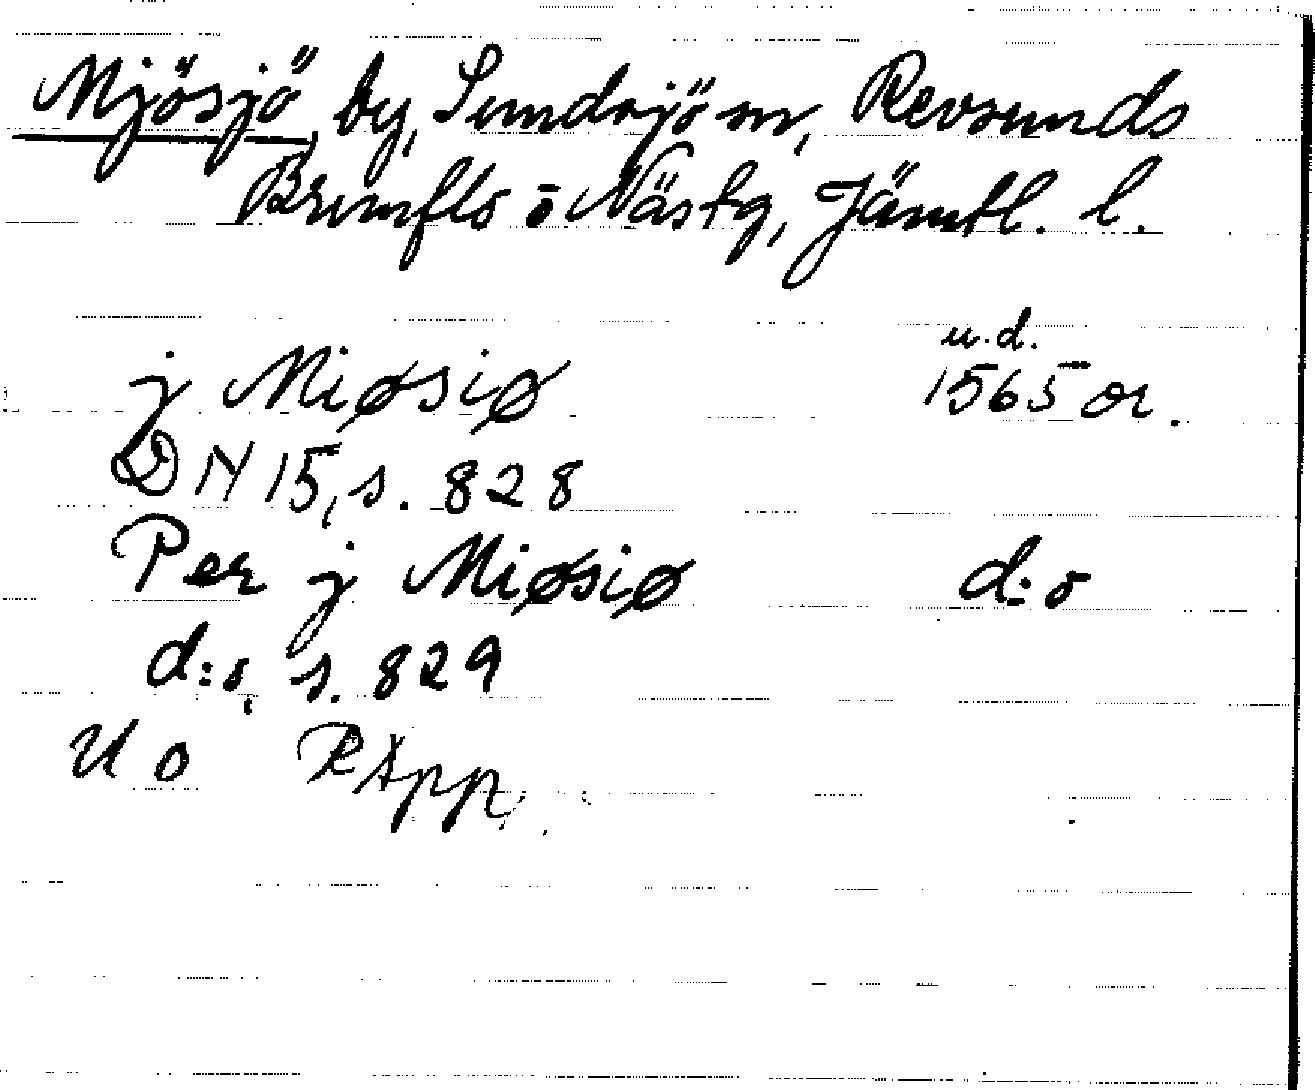 Mjösjö, by, Sundsjö sn, Revsunds
Brunflo o Näs tg, Jämtl. l.
u.d.
j Miøsiø 1565 or.
DN 15, s. 828
Per j Miøsiø d:o
d:o, s. 829
U o RÄpp.